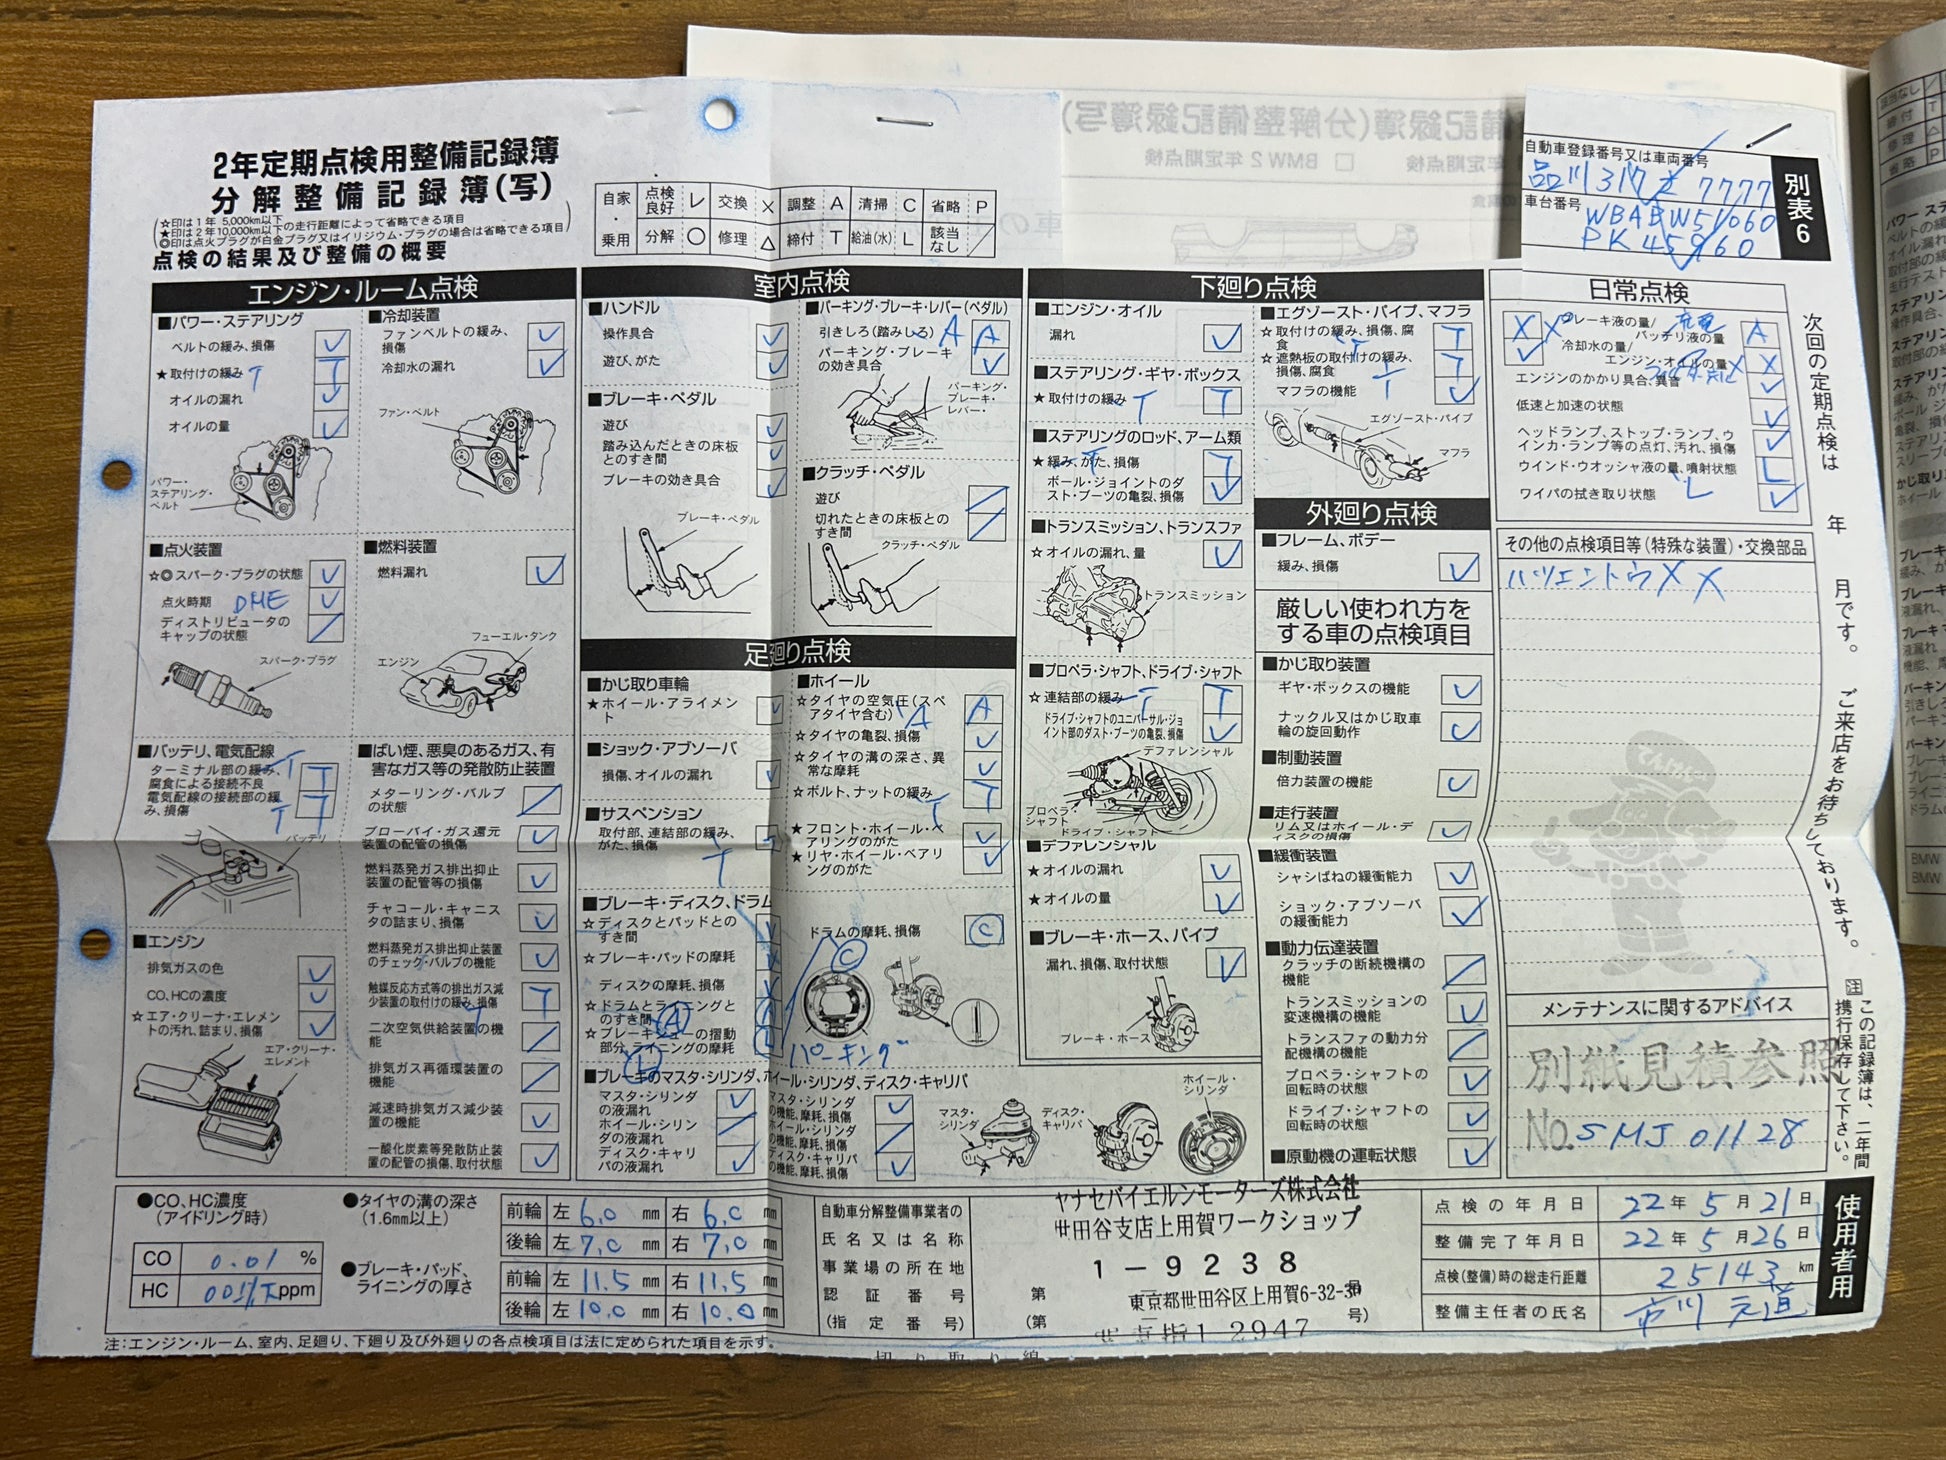 2年定期点検用整備記録簿
分解整備記録簿(写)
(☆印は1年 5,000km以下
★印は2年10,000km以下の走行距離によって省略できる項目
◎印は点火プラグが白金プラグ又はイリジウム・プラグの場合は省略できる項目)
点検の結果及び整備の概要
自家・乗用
点検良好 レ 交換 × 調整 A 清掃 C 省略 P
分解 ○ 修理 △ 締付 T 給油(水) L 該当なし ／
自動車登録番号又は車両番号
品川317 7777
車台番号
WBABW51060
PK45960
別表6
エンジン・ルーム点検
■パワー・ステアリング
ベルトの緩み、損傷
★取付けの緩み T T
オイルの漏れ
オイルの量
パワー・ステアリング・ベルト
■冷却装置
ファンベルトの緩み、損傷
冷却水の漏れ
ファン・ベルト
■点火装置
☆◎スパーク・プラグの状態
点火時期 DME
ディストリビュータのキャップの状態
スパーク・プラグ
■燃料装置
燃料漏れ
フューエル・タンク
エンジン
■バッテリ、電気配線
ターミナル部の緩み、腐食による接続不良 T T
電気配線の接続部の緩み、損傷 T T
バッテリ
■エンジン
排気ガスの色
CO、HCの濃度
☆エア・クリーナ・エレメントの汚れ、詰まり、損傷
エア・クリーナ・エレメント
■ばい煙、悪臭のあるガス、有害なガス等の発散防止装置
メターリング・バルブの状態
ブローバイ・ガス還元装置の配管の損傷
燃料蒸発ガス排出抑止装置の配管等の損傷
チャコール・キャニスタの詰まり、損傷
燃料蒸発ガス排出抑止装置のチェック・バルブの機能
触媒反応方式等の排出ガス減少装置の取付けの緩み、損傷 T
二次空気供給装置の機能
排気ガス再循環装置の機能
減速時排気ガス減少装置の機能
一酸化炭素等発散防止装置の配管の損傷、取付状態
室内点検
■ハンドル
操作具合
遊び、がた
■ブレーキ・ペダル
遊び
踏み込んだときの床板とのすき間
ブレーキの効き具合
ブレーキ・ペダル
■パーキング・ブレーキ・レバー(ペダル)
引きしろ(踏みしろ) A A
パーキング・ブレーキの効き具合
パーキング・ブレーキ・レバー・
■クラッチ・ペダル
遊び
切れたときの床板とのすき間
クラッチ・ペダル
足廻り点検
■かじ取り車輪
★ホイール・アライメント
■ショック・アブソーバ
損傷、オイルの漏れ
■サスペンション
取付部、連結部の緩み、がた、損傷 T
■ブレーキ・ディスク、ドラム
☆ディスクとパッドとのすき間
☆ブレーキ・パッドの摩耗
ディスクの摩耗、損傷
☆ドラムとライニングとのすき間 A
☆ブレーキシューの摺動部分、ライニングの摩耗 L
■ホイール
☆タイヤの空気圧(スペアタイヤ含む) A A
☆タイヤの亀裂、損傷
☆タイヤの溝の深さ、異常な摩耗
☆ボルト、ナットの緩み T T
★フロント・ホイール・ベアリングのがた
★リヤ・ホイール・ベアリングのがた
ドラムの摩耗、損傷 C C
パーキング
■ブレーキのマスタ・シリンダ、ホイール・シリンダ、ディスク・キャリパ
マスタ・シリンダの液漏れ
ホイール・シリンダの液漏れ
ディスク・キャリパの液漏れ
マスタ・シリンダの機能、摩耗、損傷
ホイール・シリンダの機能、摩耗、損傷
ディスク・キャリパの機能、摩耗、損傷
マスタ・シリンダ
ディスク・キャリパ
ホイール・シリンダ
下廻り点検
■エンジン・オイル
漏れ
■ステアリング・ギヤ・ボックス
★取付けの緩み T T
■ステアリングのロッド、アーム類
★緩み、がた、損傷 T
ボール・ジョイントのダスト・ブーツの亀裂、損傷
■トランスミッション、トランスファ
☆オイルの漏れ、量
トランスミッション
■プロペラ・シャフト、ドライブ・シャフト
☆連結部の緩み T T
ドライブ・シャフトのユニバーサル・ジョイント部のダスト・ブーツの亀裂、損傷
デファレンシャル
プロペラ・シャフト
ドライブ・シャフト
■デファレンシャル
★オイルの漏れ
★オイルの量
■ブレーキ・ホース、パイプ
漏れ、損傷、取付状態
ブレーキ・ホース
■エグゾースト・パイプ、マフラ
☆取付けの緩み、損傷、腐食 T
☆遮熱板の取付けの緩み、損傷、腐食 T T
マフラの機能
エグゾースト・パイプ
マフラ
外廻り点検
■フレーム、ボデー
緩み、損傷
厳しい使われ方をする車の点検項目
■かじ取り装置
ギヤ・ボックスの機能
ナックル又はかじ取車輪の旋回動作
■制動装置
倍力装置の機能
■走行装置
リム又はホイール・ディスクの損傷
■緩衝装置
シャシばねの緩衝能力
ショック・アブソーバの緩衝能力
■動力伝達装置
クラッチの断続機構の機能
トランスミッションの変速機構の機能
トランスファの動力分配機構の機能
プロペラ・シャフトの回転時の状態
ドライブ・シャフトの回転時の状態
■原動機の運転状態
日常点検
ブレーキ液の量/バッテリ液の量 A
冷却水の量/エンジン・オイルの量 X X
エンジンのかかり具合、異音
低速と加速の状態
ヘッドランプ、ストップ・ランプ、ウインカ・ランプ等の点灯、汚れ、損傷
ウインド・ウオッシャ液の量、噴射状態 L L
ワイパの拭き取り状態
その他の点検項目等(特殊な装置)・交換部品
ハツエントウ X X
メンテナンスに関するアドバイス
別紙見積参照
No. SMJ 01128
次回の定期点検は 年 月です。 ご来店をお待ちしております。
注 この記録簿は、二年間携行保存して下さい。
●CO、HC濃度(アイドリング時)
CO 0.01 %
HC ppm
●タイヤの溝の深さ(1.6mm以上)
前輪 左 6.0 mm 右 6.0 mm
後輪 左 7.0 mm 右 7.0 mm
●ブレーキ・パッド、ライニングの厚さ
前輪 左 11.5 mm 右 11.5 mm
後輪 左 10.0 mm 右 10.0 mm
自動車分解整備事業者の氏名又は名称
事業場の所在地
認証番号
(指定番号)
ヤナセバイエルンモーターズ株式会社
世田谷支店上用賀ワークショップ
第 1-9238 号
東京都世田谷区上用賀6-32-30
(第 2947 号)
点検の年月日 22年5月21日
整備完了年月日 22年5月26日
点検(整備)時の総走行距離 25143 km
整備主任者の氏名 市川
使用者用
注:エンジン・ルーム、室内、足廻り、下廻り及び外廻りの各点検項目は法に定められた項目を示す。
切り取り線